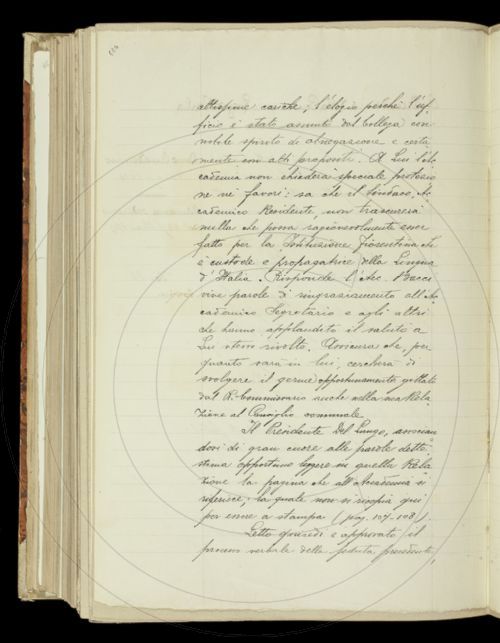 altissime cariche; l'elogio perchè l'uf-
ficio è stato assunto dal Collega con
nobile spirito di abnegazione e certa
mente con alti propositi. A Lui l'Ac
cademia non chiederà speciale protezio
ne nè favori; sa che il Sindaco, Ac
cademico Residente, non trascurerà
nulla che possa ragionevolmente esser
fatto per la Istituzione fiorentina che
è custode e propagatrice della Lingua
d'Italia. Risponde l'Acc. Bacci
vive parole di ringraziamento all'Ac
cademico Segretario e agli altri
che hanno applaudito il saluto a
Lui stesso rivolto. Assicura che, per
quanto sarà in lui, cercherà di
svolgere il germe opportunamente gettato
dal R. Commissario anche nella sua Rela
zione al Consiglio comunale.
Il Presidente Del Lungo, associan
dosi di gran cuore alle parole dette
stima opportuno leggere in quella Rela
zione la pagina che all'Accademia si
riferisce; la quale non si ricopia qui
per essere a stampa (pag. 107-108).
Letto quindi e approvato il
processo verbale della seduta precedente,